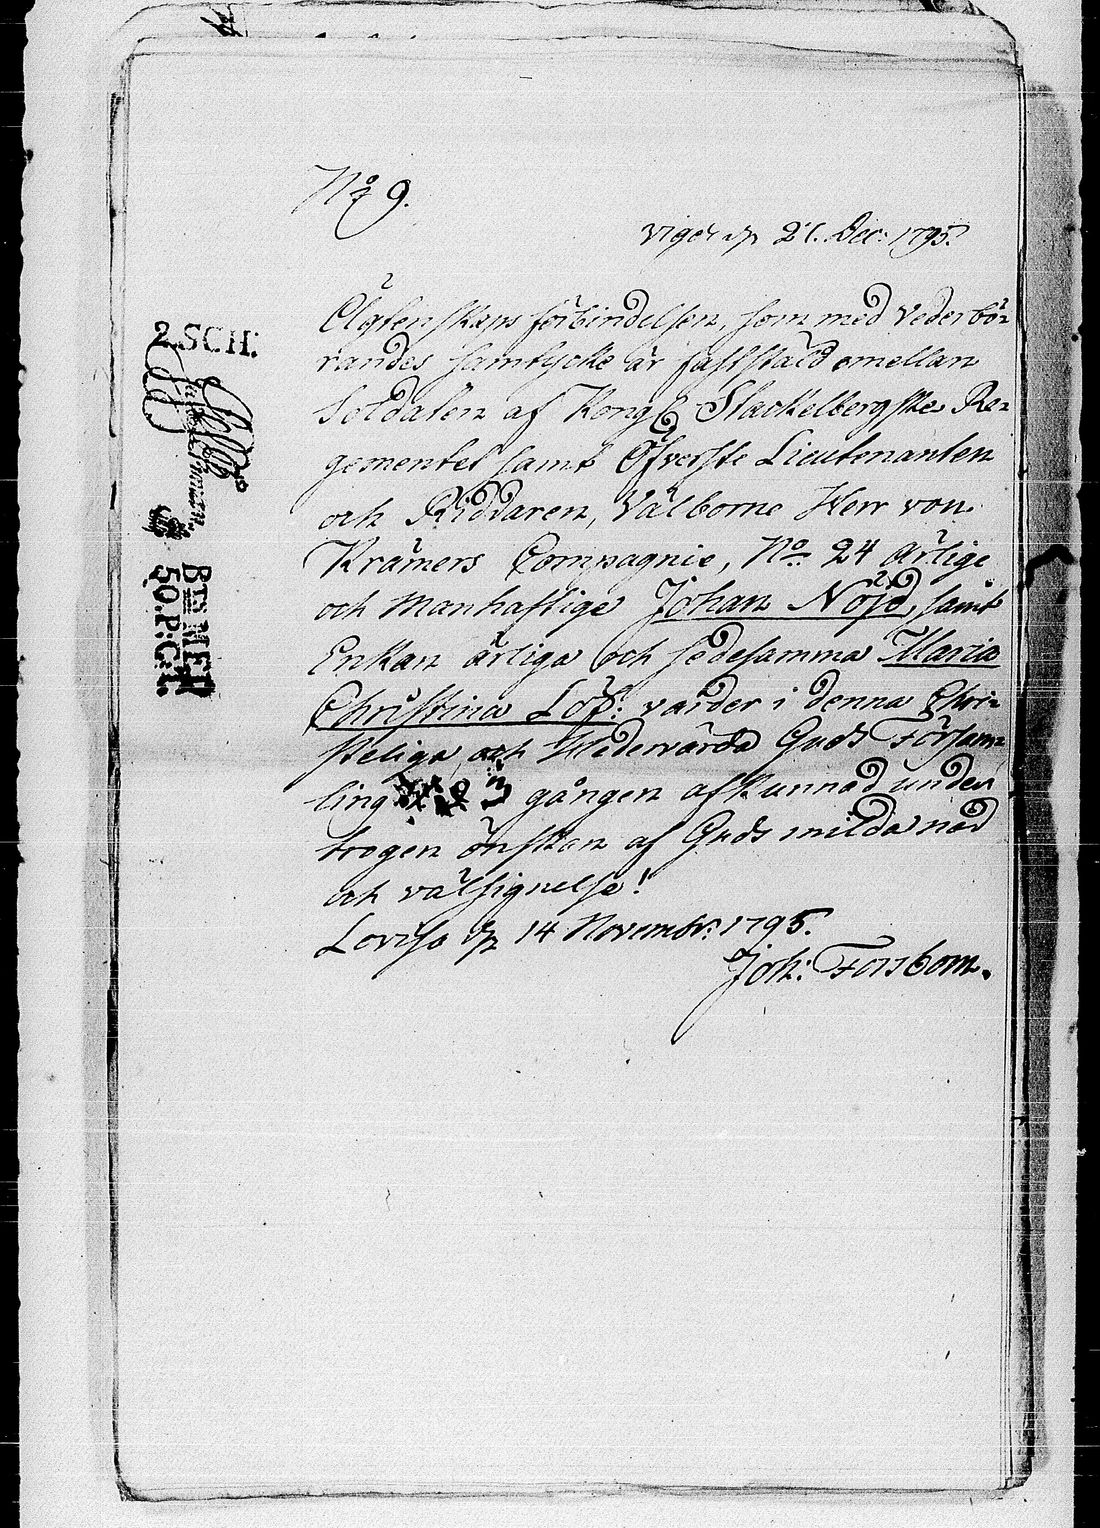 No 9.
Vigde d. 27. Dec: 1795.
Ägtenskaps förbindelsen, som med Vederbö-
randes samtycke är fastställd emellan
Soldaten af Kongl. Stackelbergska Re-
gementet samt Öfverste Lieutenanten
och Riddaren, Välborne Herr von
Krämers Compagnie, No 24 ärlige
och Manhaftige Johan Nöjd, samt
Enkan ärliga och sedesamma Maria
Christina Löf: varder i denna Chri-
steliga och Hedervärda Guds Församm-
ling 3 gången afkunnad under
trogen önskan af Guds milda nåd
och välsignelse!
Lovisa d. 14 Novembr: 1795.
Joh: Forsbom.
2.SCH: